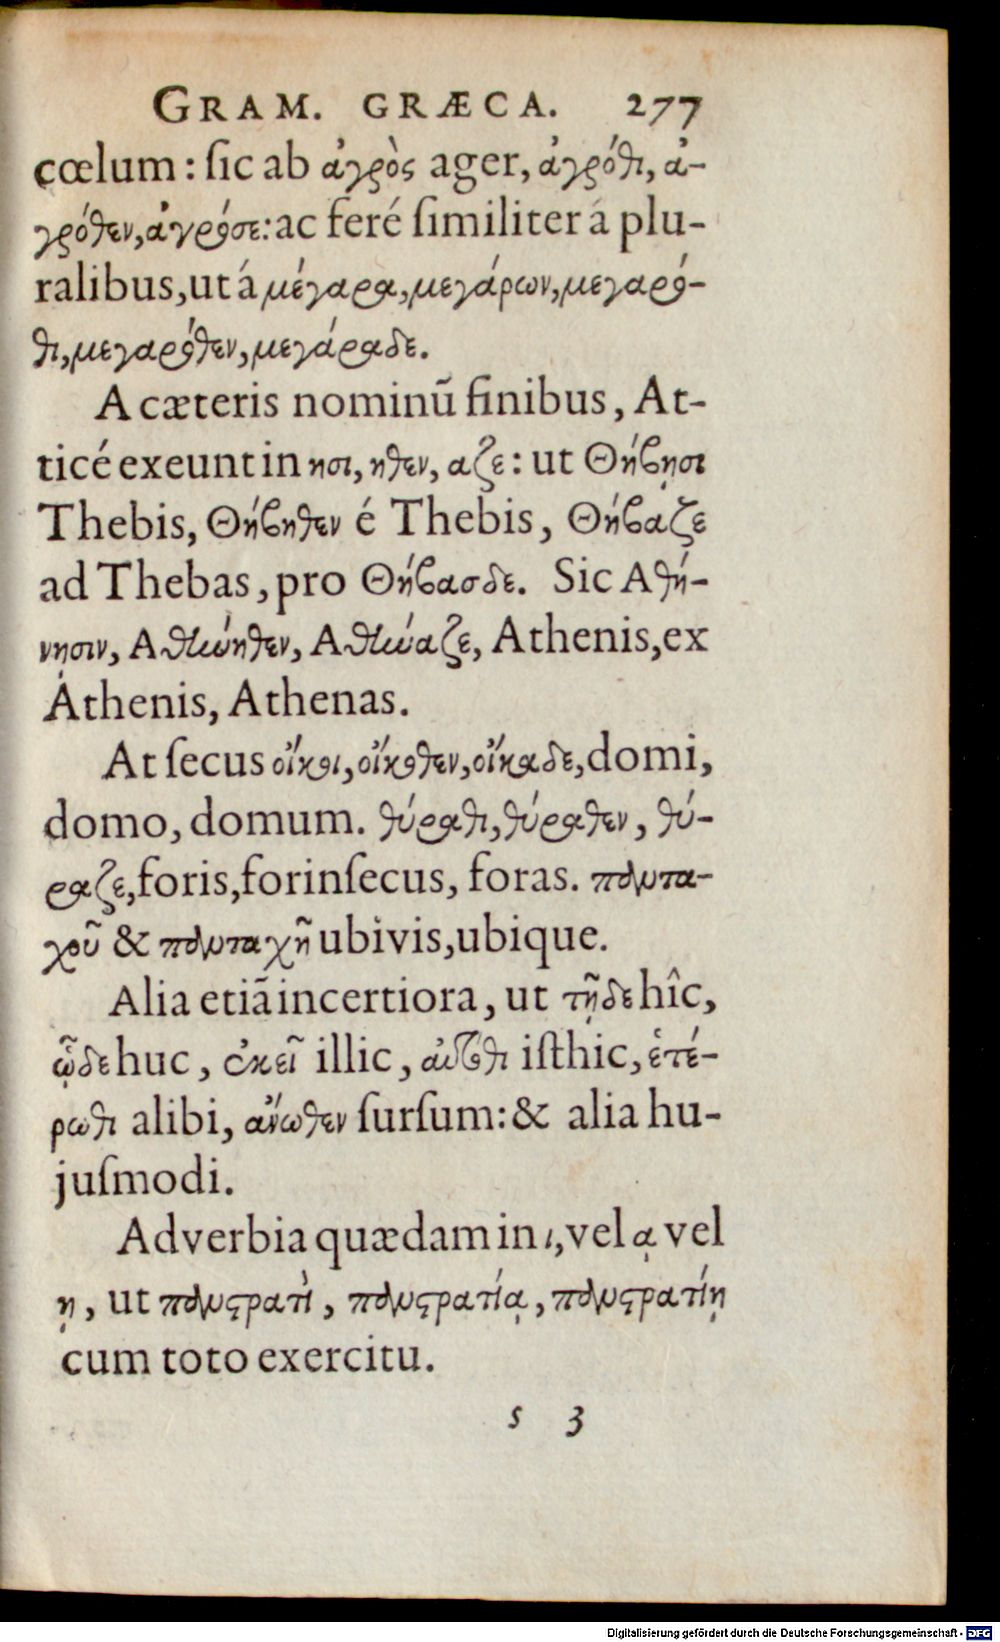 GRAM. GRÆCA. 277
cœlum: ſic ab ἀγρὸς ager, ἀγρόθι, ἀ-
γρόθεν, ἀγρόσε: ac feré ſimiliter á plu-
ralibus, ut á μέγαρα, μεγάρων, μεγαρό-
θι, μεγαρόθεν, μεγάραδε.
A cæteris nominũ finibus, At-
ticé exeunt in ησι, ηθεν, αζε: ut Θήβῃσι
Thebis, Θήβηθεν é Thebis, Θήβαζε
ad Thebas, pro Θήβασδε. Sic Αθή-
νῃσιν, Αθήνηθεν, Αθήναζε, Athenis, ex
Athenis, Athenas.
At ſecus οἴκοι, οἴκοθεν, οἴκαδε, domi,
domo, domum. θύραθι, θύραθεν, θύ-
ραζε, foris, forinſecus, foras. πολυτα-
χοῦ & πολυταχῆ ubivis, ubique.
Alia etiã incertiora, ut τῇδε hîc,
ᾧδε huc, ἐκεῖ illic, αὐτόθι iſthic, ἑτέ-
ρωθι alibi, ἄνωθεν ſurſum: & alia hu-
juſmodi.
Adverbia quædam in ι, vel ᾳ vel
ῃ, ut πολυστρατὶ, πολυστρατίᾳ, πολυστρατίῃ
cum toto exercitu.
s 3
Digitalisierung gefördert durch die Deutsche Forschungsgemeinschaft - DFG